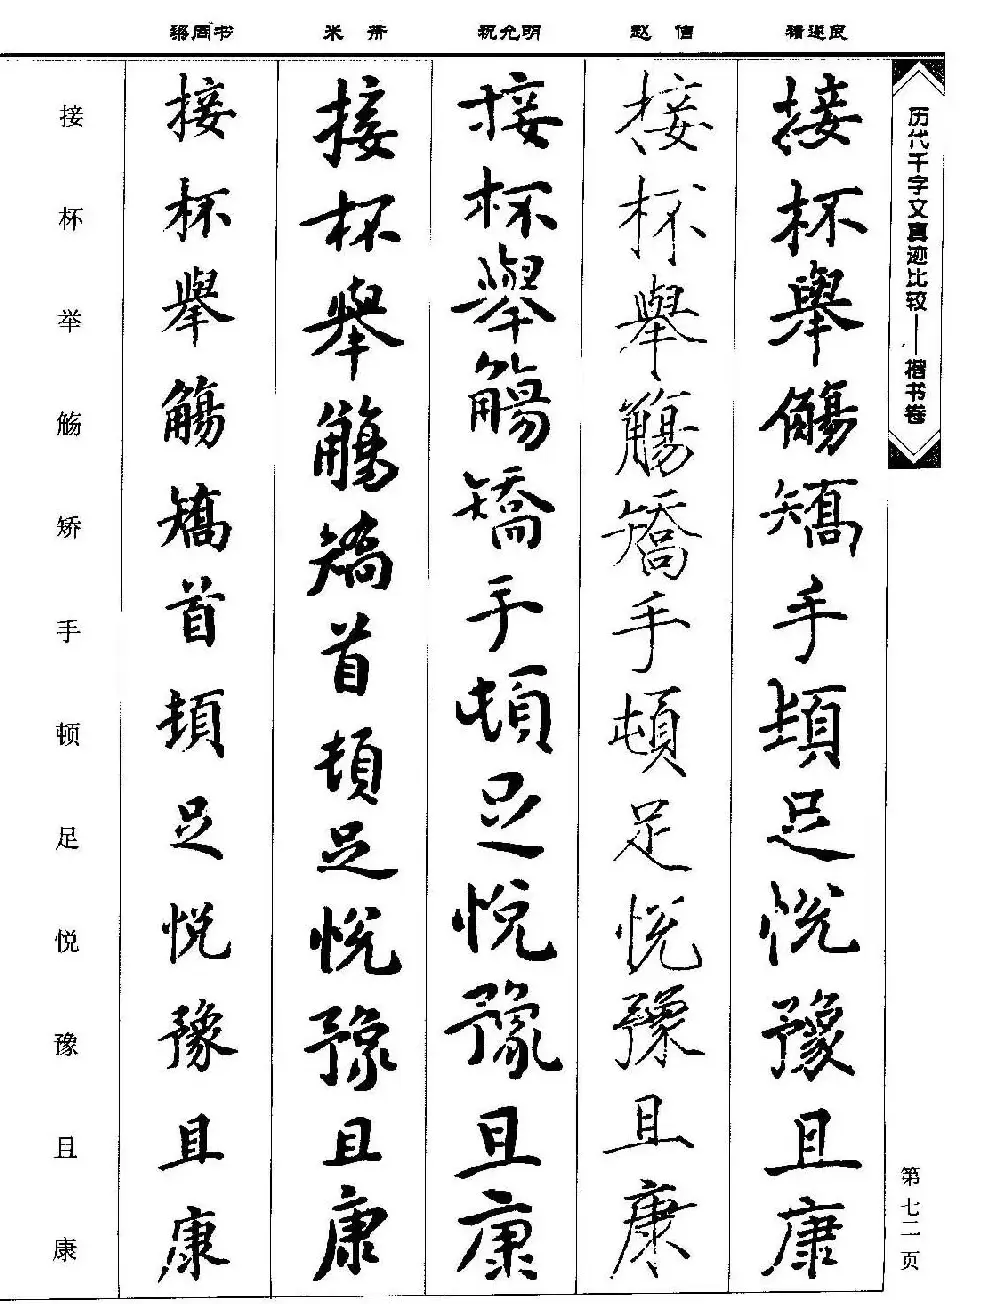 梁同书 米芾 祝允明 赵佶 褚遂良
历代千字文真迹比较——楷书卷
第七二页
接杯舉觴矯手頓足悦豫且康
接杯舉觴矯手頓足悦豫且康
接杯舉觴矯手頓足悦豫且康
接杯舉觴矯首頓足悦豫且康
接杯舉觴矯首頓足悦豫且康
接杯举觞矫手顿足悦豫且康